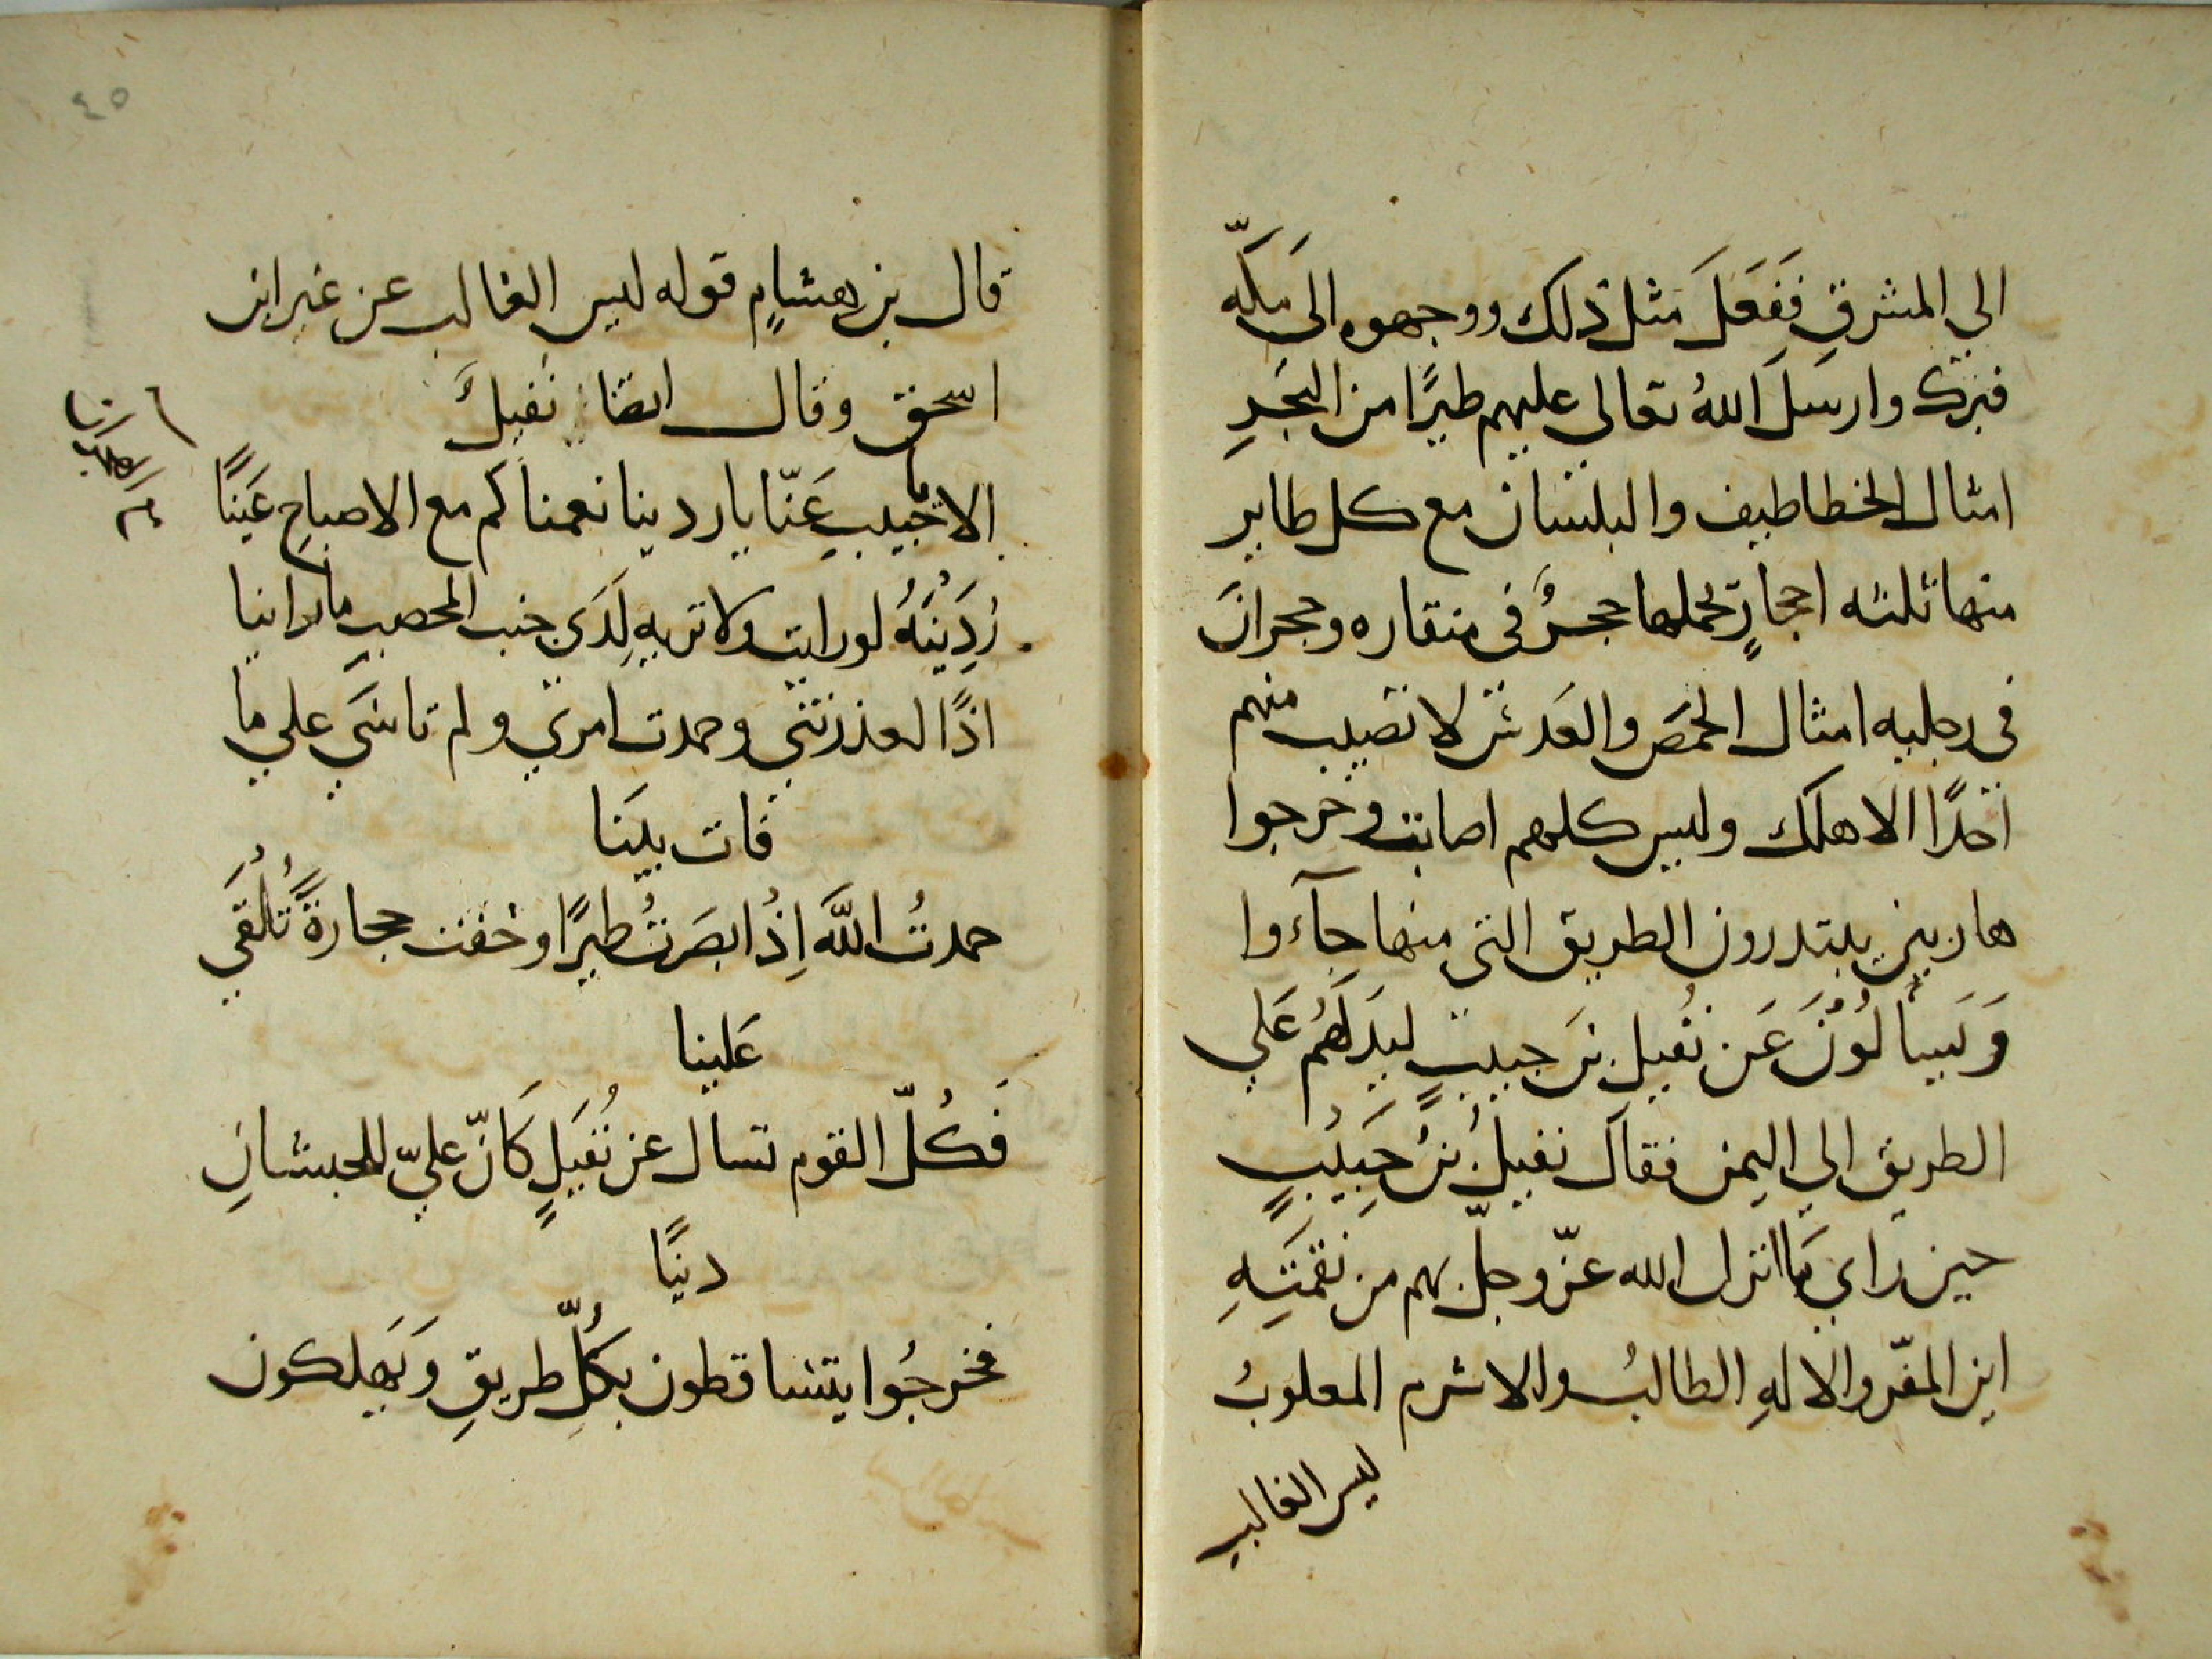 الي المشرقِ فَفَعَلَ مثل ذلك ووجهوه الىَ مَكَّه
فبرك وارسَلَ اللهُ تعالي عليهم طيرًا من البَحرِ
امثال الخطاطيف والبلسان مع كل طاير
منها ثلثه احجارٍ يحملها حجرٌ في منقاره وحجرانَ
في رجليه امثال الحمَص والعَدس لا تصيب منهم
احدًا الا هلك وليس كلهم اصابت وخرجوا
هاربين يبتدرون الطريق التي منها جآءوا
وَيَسالُوُنَ عَن نُفيل بنَ حبيبٍ ليَدلَهُم عَلي
الطريق الي اليمن فقال نفيلُ بنُ حَبَيبٍ
حين راي مَا انزل الله عزّ وجلّ بهم من نقمَتِهِ
اين المفّر والالهِ الطالبُ والاشرم المعلوبُ
ليس الغالب
٤٥
قال بن هشامٍ قوله ليس الغالب عن غير ابن
اسحق وقال ايضا نُفيلَ
الا حُييتِ عَنّا يا ردينا نعمناكم مع الاصباحِ عَينًا
رُدَينَهُ لو رايت ولا تريهِ لِدَي جنب المحصبِ ما راينا
اذًا لعذرتني وحمدت امري ولم تاسَي علي ما
فات بينَا
حمدتُ اللَّهَ اِذْ ابصَرتُ طيرًا وخفت حجارةً تُلُقَي
عَلينا
فَكُلّ القوم تسال عن نُفَيَلٍ كَانّ عليّ للحبشانِ
دنيًا
فخرجُوا يتساقطون بكُلِّ طريقِ وَيَهلكون